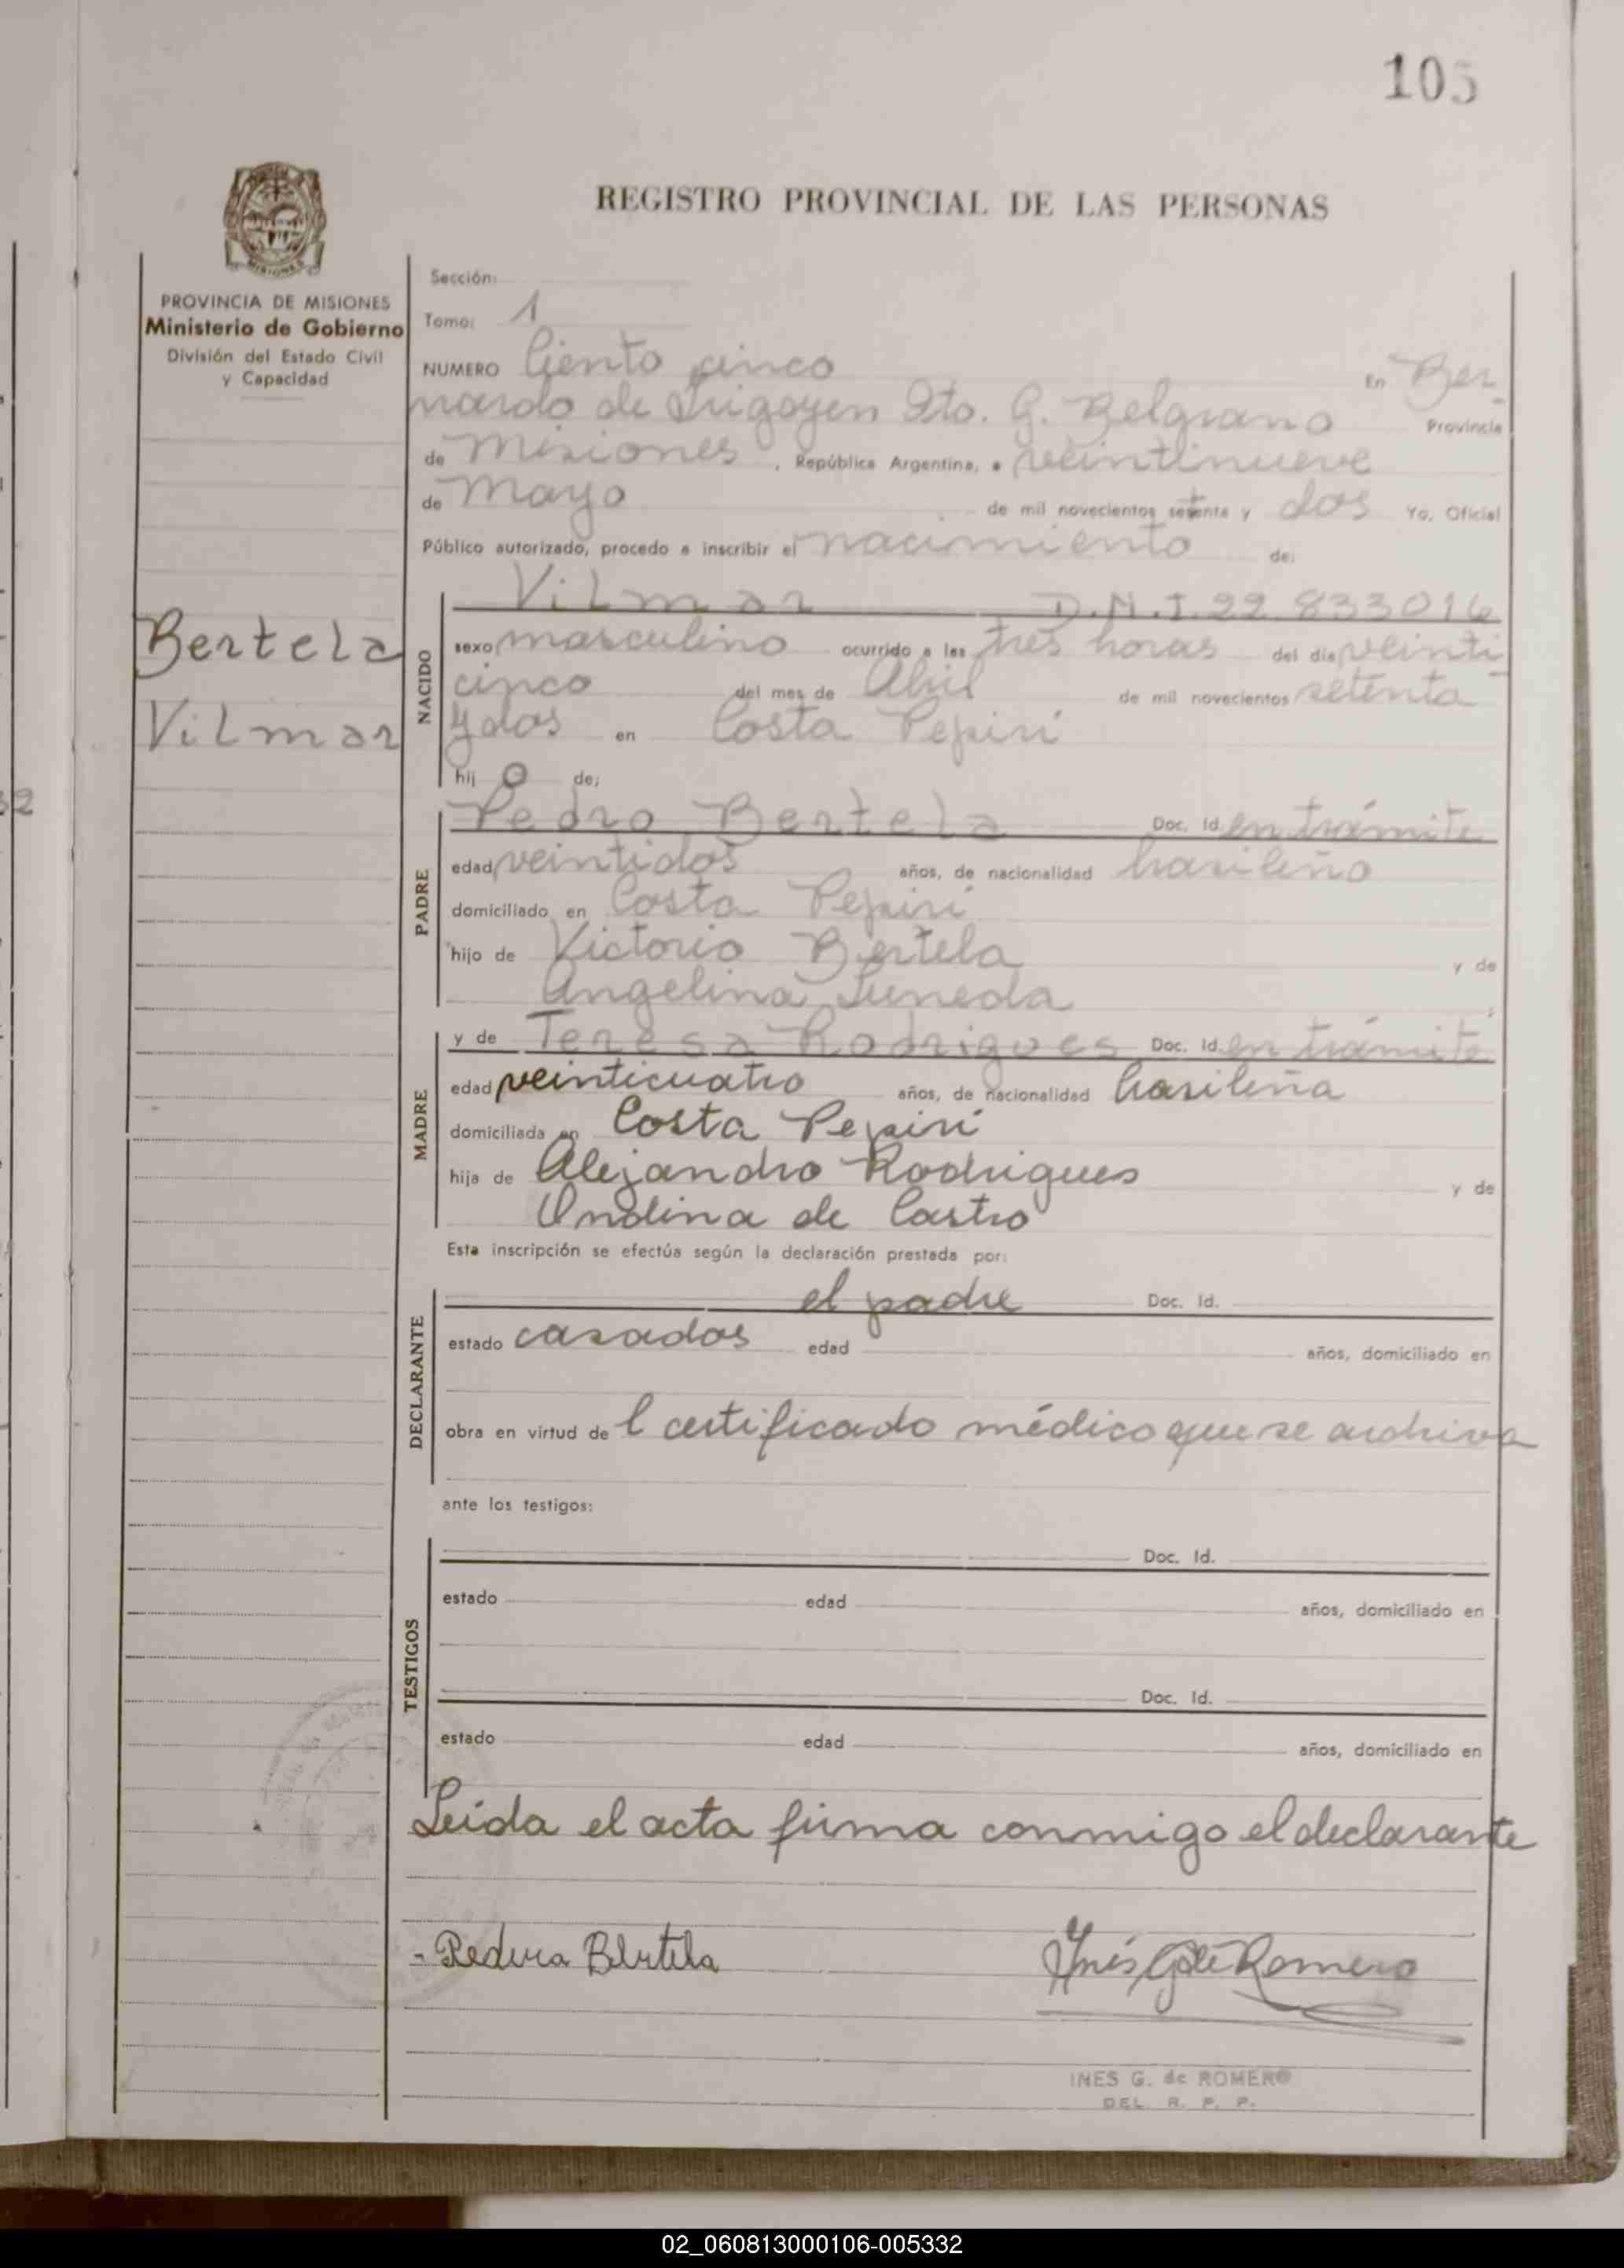 105
REGISTRO PROVINCIAL DE LAS PERSONAS
MISIONES
PROVINCIA DE MISIONES
Ministerio de Gobierno
División del Estado Civil
y Capacidad
Bertela
Vilmar
Sección:
Tomo: 1
NUMERO Ciento cinco En Ber-
nardo de Irigoyen Dto. G. Belgrano Provincia
de Misiones, República Argentina, a veintinueve
de Mayo de mil novecientos setenta y dos Yo, Oficial
Público autorizado, procedo a inscribir el nacimiento de:
NACIDO
Vilmar D.N.I. 22 833016
sexo masculino ocurrido a las tres horas del día veinti
cinco del mes de Abril de mil novecientos setenta
y dos en Costa Pepirí
hij o de:
PADRE
Pedro Bertela Doc. Id. en trámite
edad veintidos años, de nacionalidad brasileño
domiciliado en Costa Pepirí
hijo de Victorio Bertela y de
Angelina
MADRE
y de Teresa Rodrigues Doc. Id. en trámite
edad veinticuatro años, de nacionalidad brasileña
domiciliada en Costa Pepirí
hija de Alejandro Rodrigues y de
Ondina de Castro
Esta inscripción se efectúa según la declaración prestada por:
DECLARANTE
el padre Doc. Id.
estado casados edad años, domiciliado en
obra en virtud de l certificado médico que se archiva
ante los testigos:
TESTIGOS
Doc. Id.
estado edad años, domiciliado en
Doc. Id.
estado edad años, domiciliado en
Leída el acta firma conmigo el declarante
Bertela Inés G de Romero
INES G. de ROMERO
DEL. R. P. P.
02_060813000106-005332